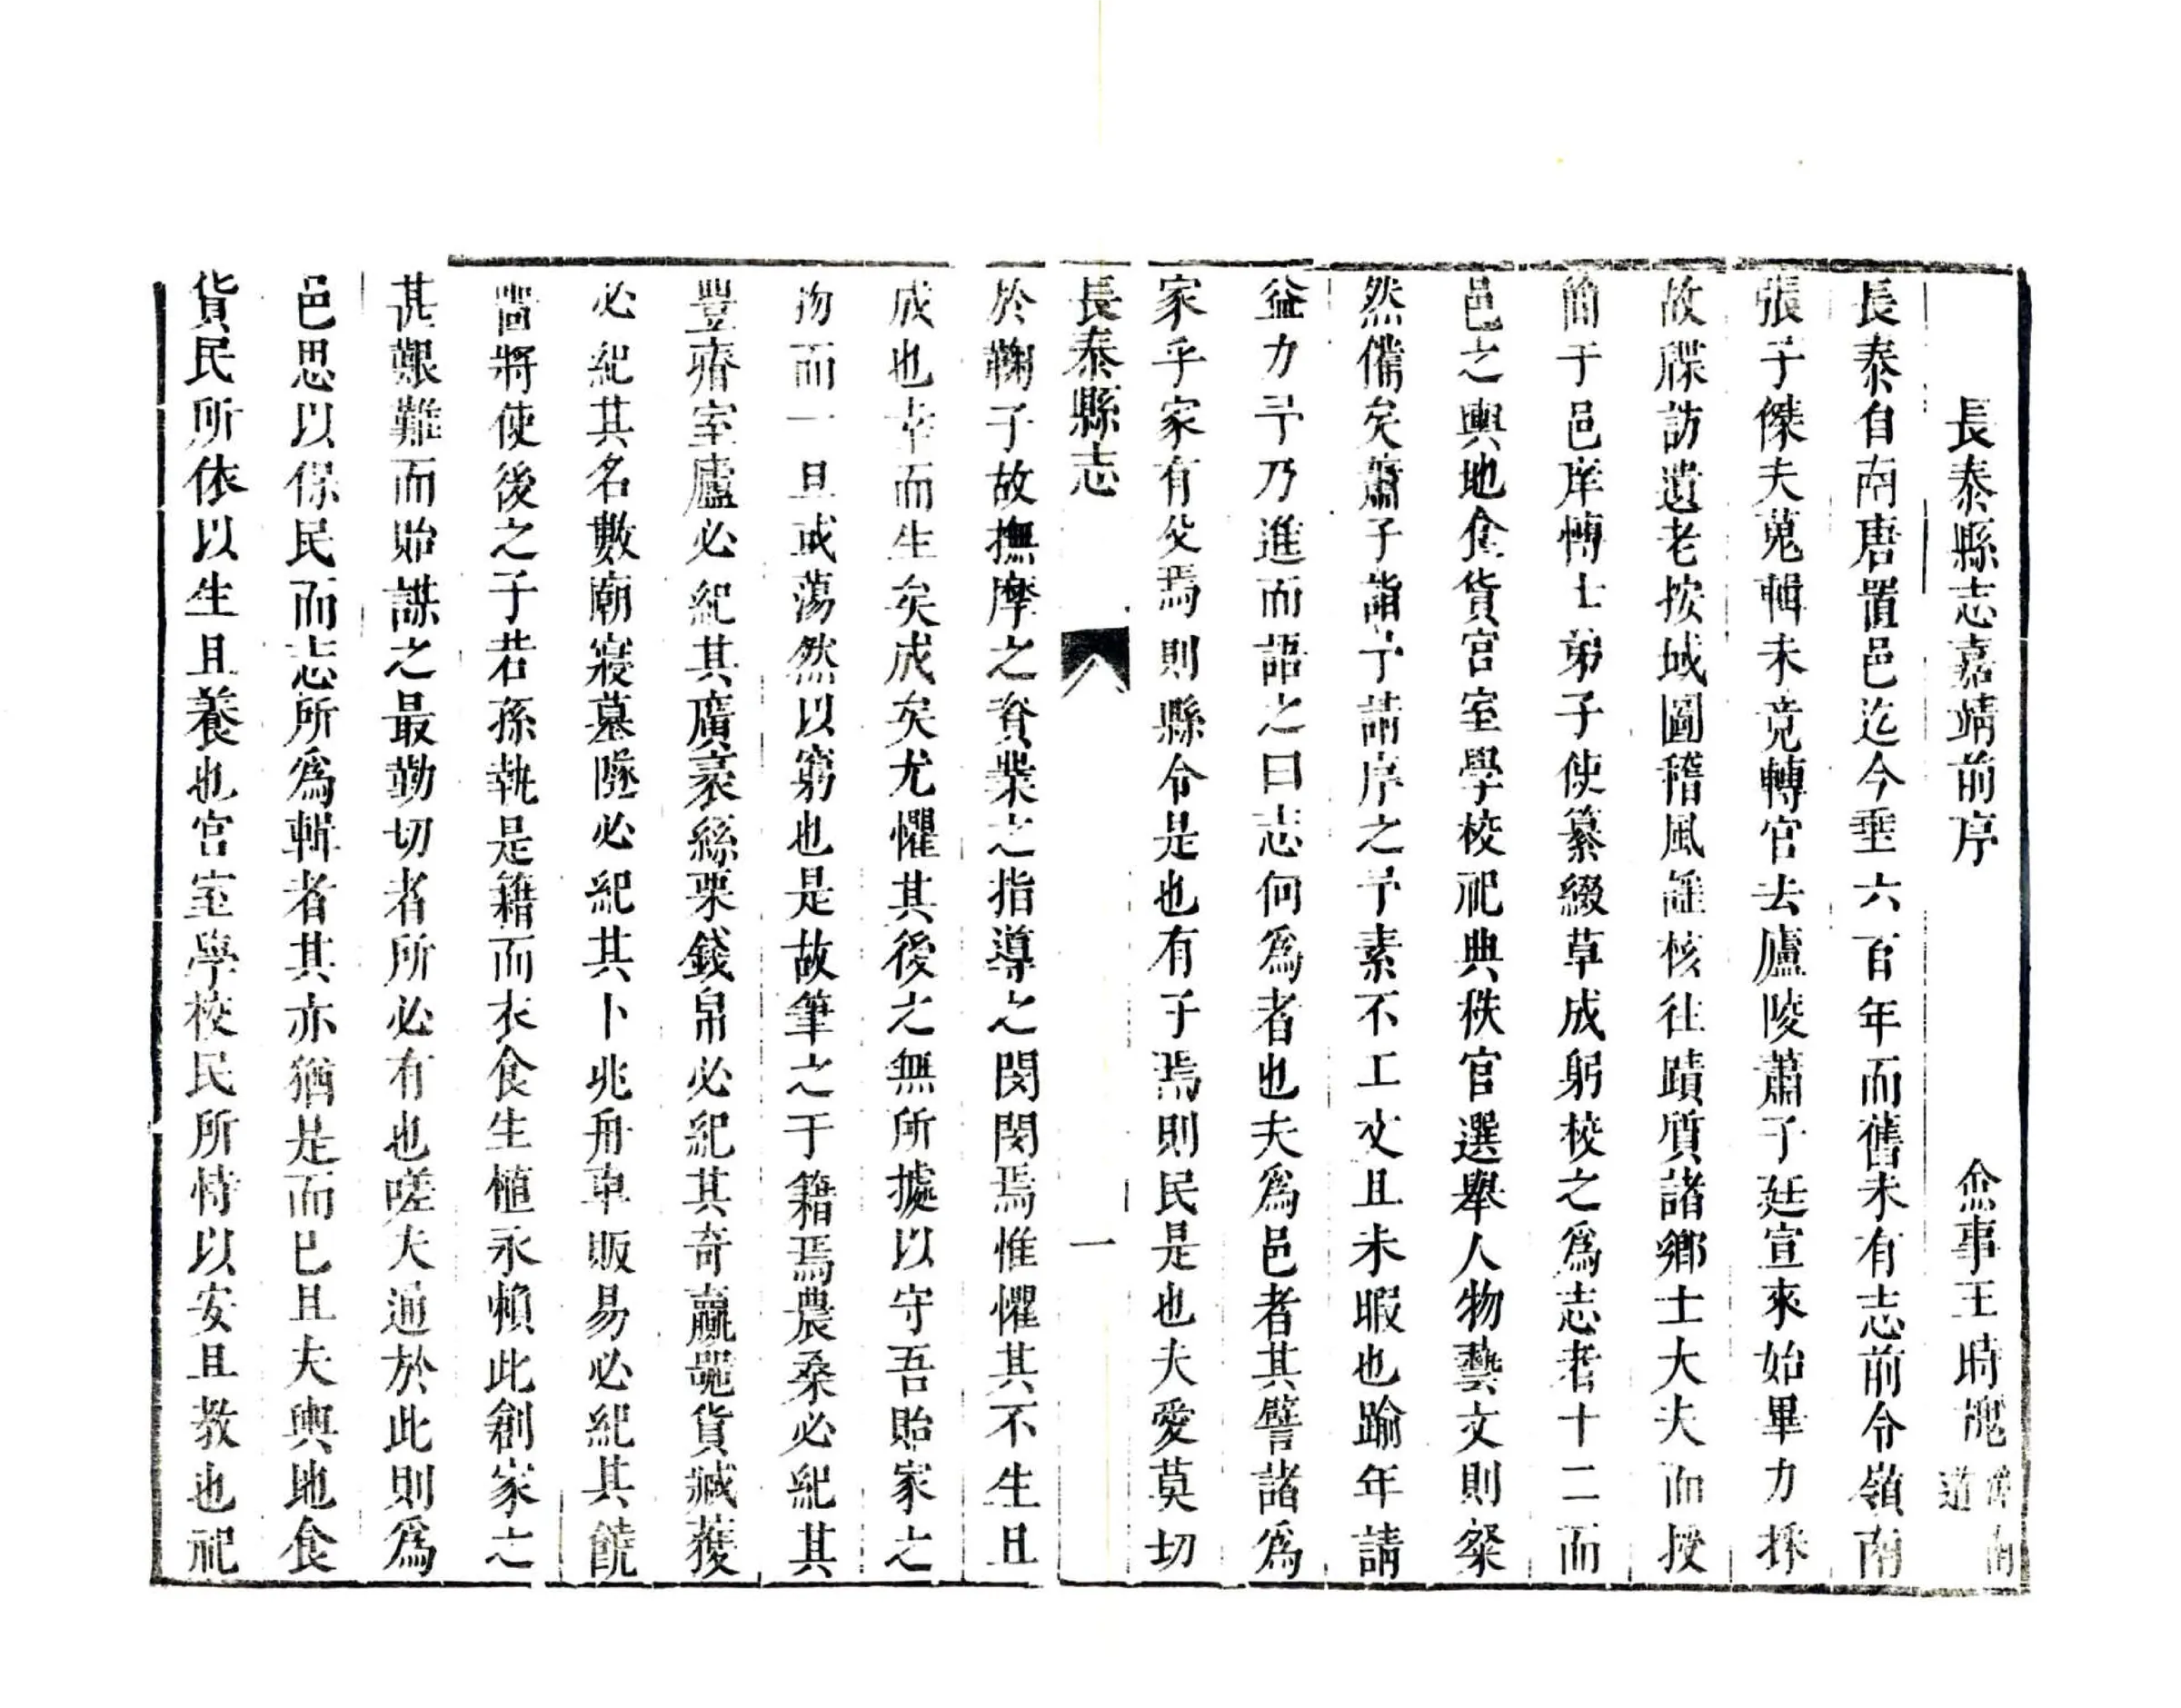 長泰縣志嘉靖前序　僉事王時槐漳南道
長泰自南唐置邑迄今垂六百年而舊未有志前令嶺南
張子傑夫蒐輯未竟轉官去廬陵蕭子廷宣來始畢力採
故牒訪遺老按域圖稽風謡核往蹟質諸鄉士大夫而授
簡于邑庠博士弟子使纂綴草成躬校之爲志者十二而
邑之輿地食貨宮室學校祀典秩官選舉人物藝文則粲
然備矣蕭子詣予請序之予素不工文且未暇也踰年請
益力予乃進而語之曰志何爲者也夫爲邑者其譬諸爲
家乎家有父焉則縣令是也有子焉則民是也夫愛莫切
長泰縣志　一
於鞠子故撫摩之資業之指導之閔閔焉惟懼其不生且
成也幸而生矣成矣尤懼其後之無所據以守吾貽家之
物而一旦或蕩然以窮也是故筆之于籍焉農桑必紀其
豐瘠室廬必紀其廣袤絲粟錢帛必紀其奇贏器貨臧獲
必紀其名數廟寢墓隧必紀其卜兆舟車販易必紀其饒
嗇將使後之子若孫執是籍而衣食生殖永賴此創家之
甚艱難而貽謀之最勤切者所必有也嗟夫通於此則爲
邑思以保民而志所爲輯者其亦猶是而已且夫輿地食
貨民所依以生且養也宮室學校民所恃以安且教也祀